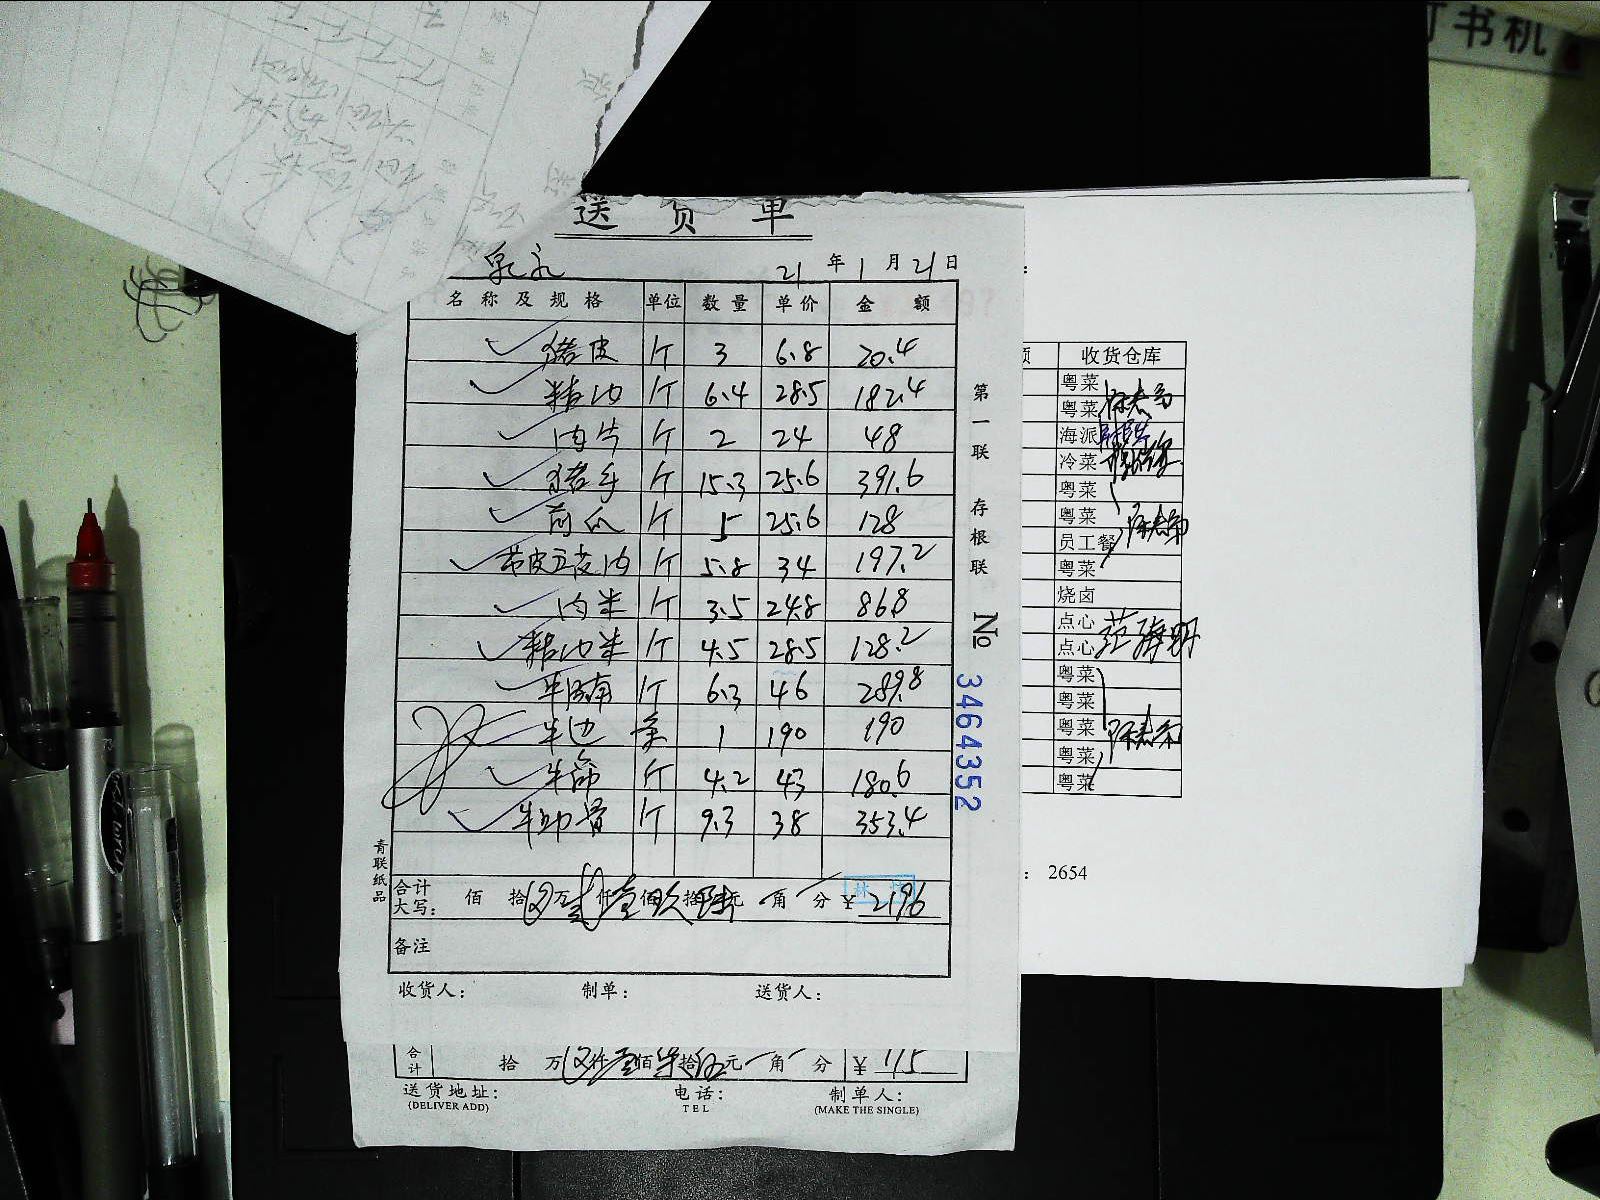 订书机
送货单
泉永 21年1月21日
名称及规格 单位 数量 单价 金额
猪皮 斤 3 6.8 20.4
精肉 斤 6.4 28.5 182.4
肉片 斤 2 24 48
猪手 斤 15.3 25.6 391.6
前爪 斤 5 25.6 128
带皮五花肉 斤 5.8 34 197.2
肉米 斤 3.5 24.8 86.8
精肉米 斤 4.5 28.5 128.2
牛腩 斤 6.3 46 289.8
牛边 条 1 190 190
牛筋 斤 4.2 43 180.6
牛肋骨 斤 9.3 38 353.4
合计大写: 佰 拾 万 仟壹佰玖拾陆元 角 分 ¥2196
备注
收货人: 制单: 送货人:
第一联 存根联
No 3464352
青联纸品
合计 拾 万 仟壹佰 拾 元 角 分 ¥ 175
送货地址: 电话: 制单人:
(DELIVER ADD) TEL (MAKE THE SINGLE)
额 收货仓库
粤菜
粤菜
海派
冷菜
粤菜
粤菜
员工餐
粤菜
烧卤
点心
点心 范海明
粤菜
粤菜
粤菜
粤菜
粤菜
: 2654